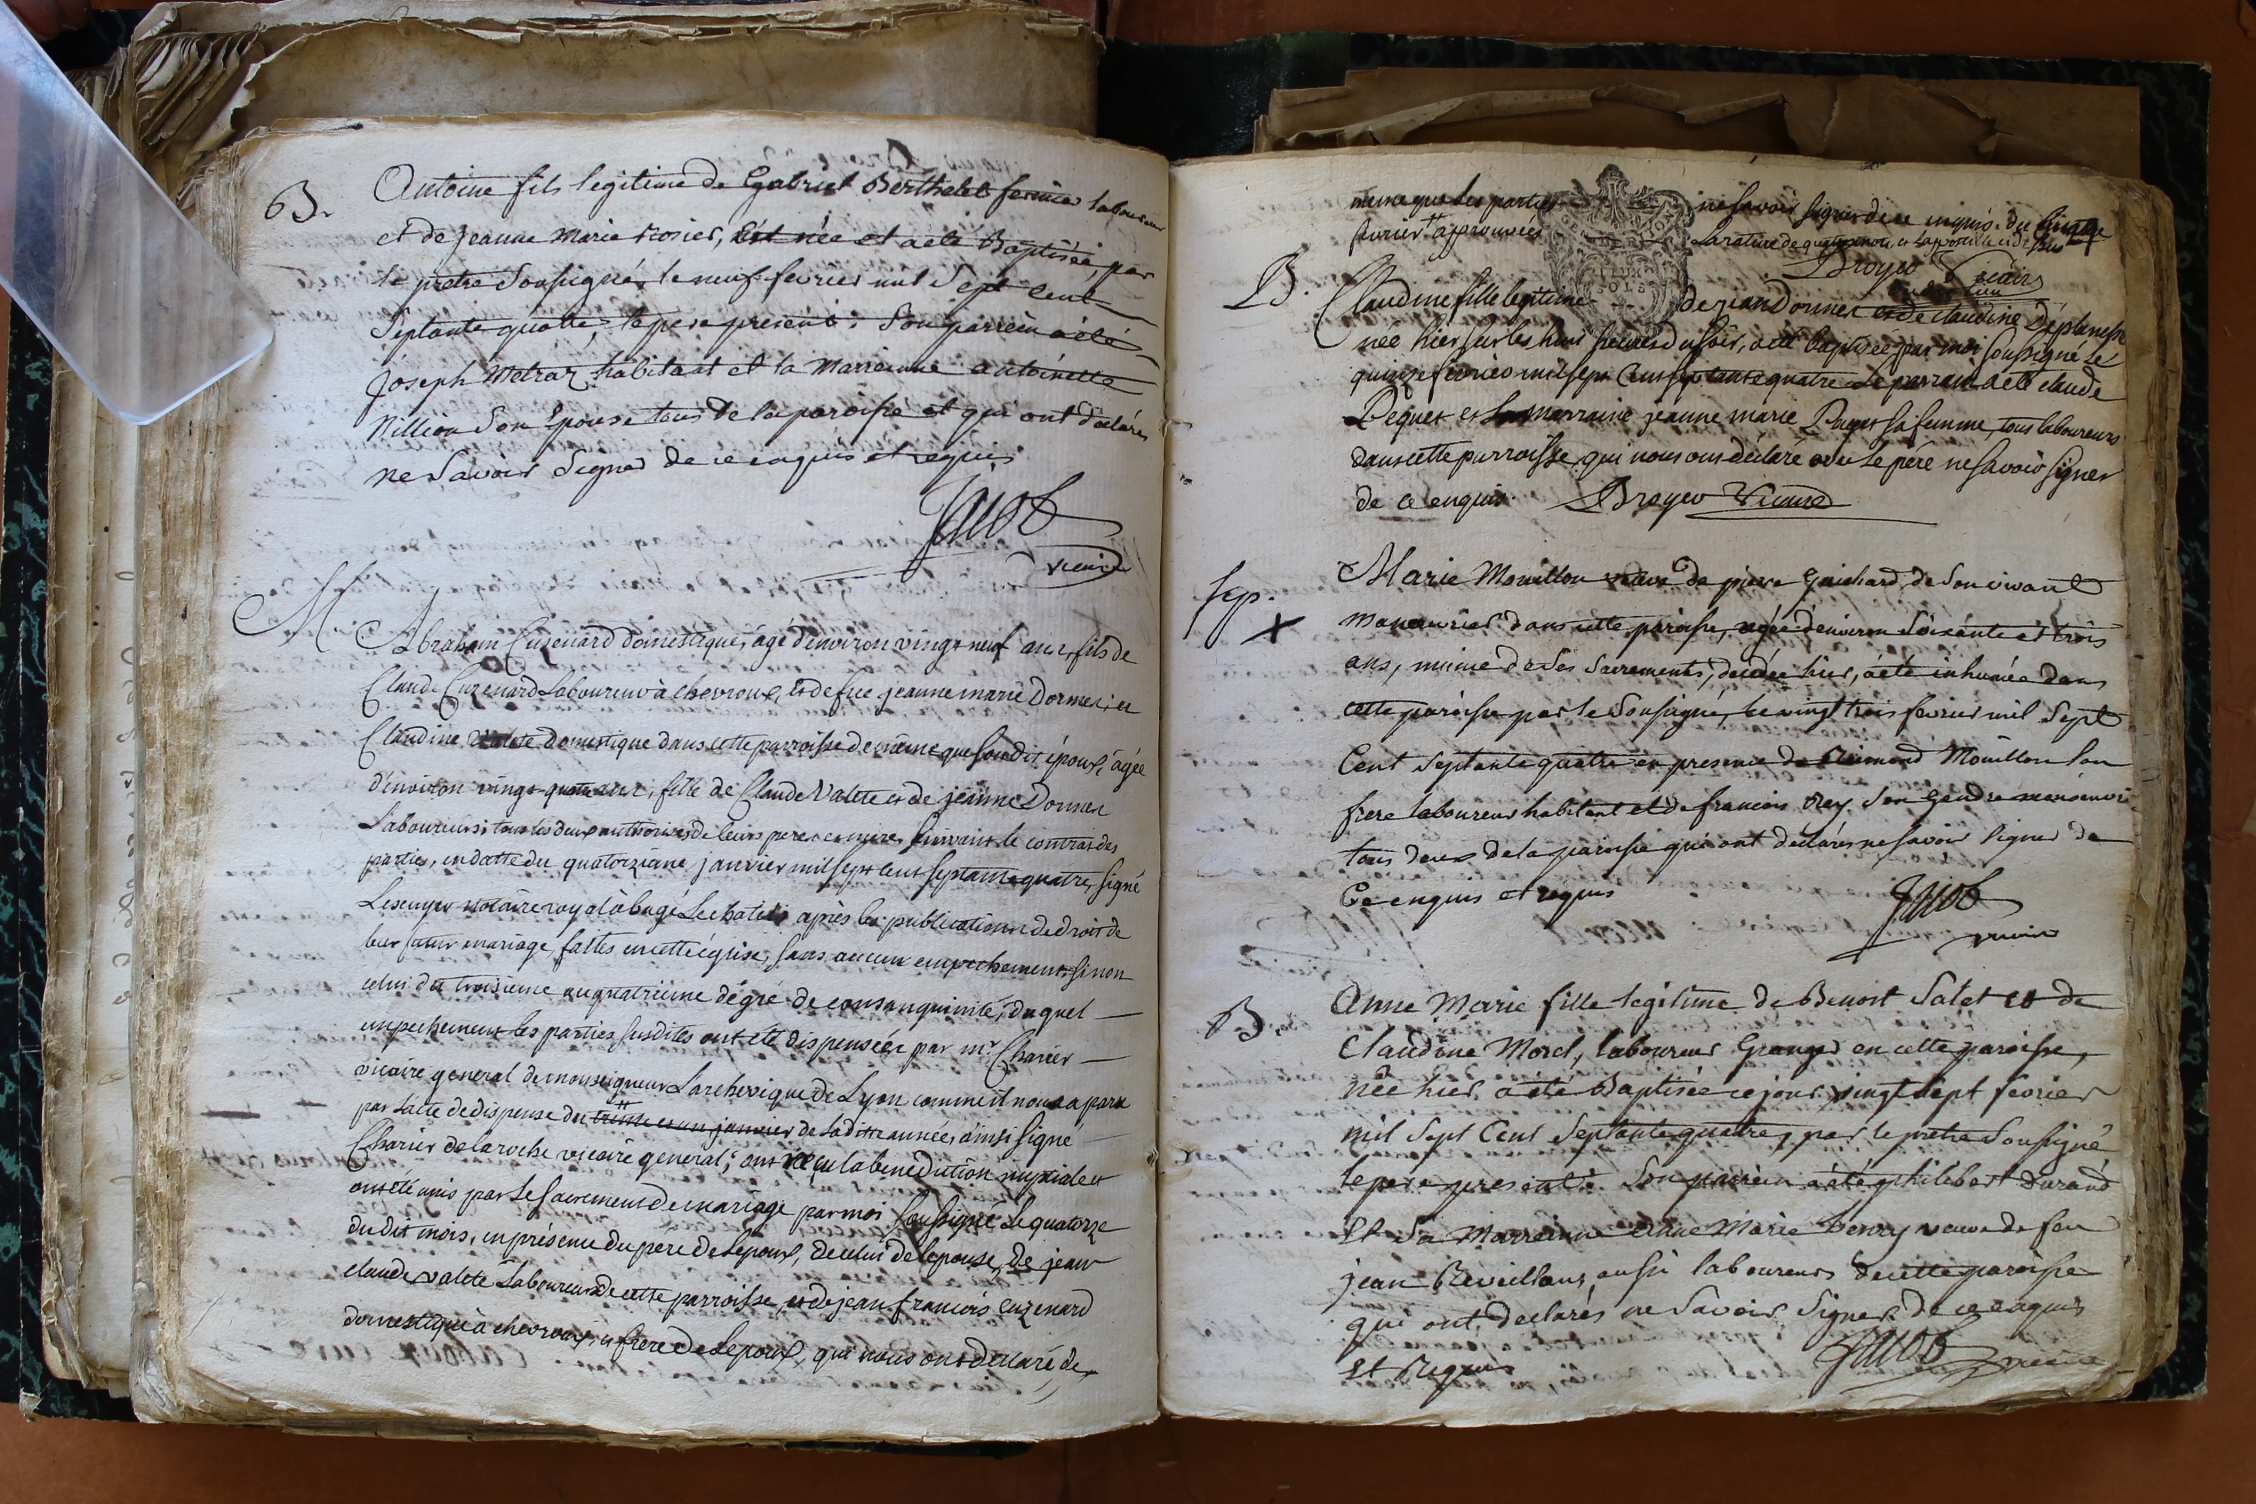 B.
Antoine fils legitime de Gabriel Berthelet fermier laboureur
et de jeanne Marie rosier, est née et a eté Baptisée, par
le pretre Soussigné, le neuf fevrier mil Sept Cent
Septante quatre, le pere present. Son parrein a eté
joseph Metraz habitant et la Marreinne antoinette
Villion Son Epouse tous de la paroisse et qui ont déclarés
ne Savoir Signer de ce enquis et requis
Jacob
vicaire
M
Abraham Cuzenard domestique, âgé d'environ vingt neuf ans, fils de
Claude Cuzenard laboureur à chevroux, et de fue jeanne marie Donnet; et
Claudine Valete domestique dans cette parroisse de même que son dit époux, âgée
d'environ vingt quatre ans, fille de Claude Valete et de jeanne Donnet
laboureurs; tous les deux authorisés de leurs peres et meres suivant le contrat des
parties, en datte du quatorzième janvier mil sept cent septante quatre, signé
notaire royal à bagé Le chatel; après les publications de droit de
leur futur mariage faittes en cette église, sans aucun empechement sinon
celui du troisième au quatrième dégré de consanguinité; duquel
empechement les parties susdites ont eté dispensées par mr Charier
vicaire general de monseigneur L'archevêque de Lyon comme il nous a paru
par l'acte de dispense du trente et un janvier de la ditte année, ainsi signé
Charier de la roche vicaire general; ont reçu la benediction nuptiale et
ont été unis par le Sacrement de mariage par moi soussigné le quatorze
du dit mois, en présence du pere de l'epoux, de celui de l'epouse, de jean
claude valete laboureur de cette parroisse, et de jean françois cuzenard
domestique à chevroux, et frere de l'epoux, qui nous ont declaré de
meme que les parties ne savoir signer de ce enquis. du
fevrier approuvée la rature de quatre mots, et
Broyer Vicaire
B.
Claudine fille legitime de jean Donnet et de claudine Deplanche
née hier sur les huit heures du soir, a eté baptisée par moi soussigné le
quinze fevrier mil sept cent septante quatre. Le parrain a eté claude
Pequet et la marraine jeanne marie Paget sa femme, tous laboureurs
dans cette parroisse, qui nous ont déclaré avec le père ne savoir signer
de ce enquis. Broyer Vicaire
Sep.
X
Marie Mouillon veuve de pierre Guichard, de son vivant
manouvrier dans cette paroisse, agée d'environ Soixante et trois
ans, munie de ses Sacrements, decedée hier, a été inhumée dans
cette paroisse par le Soussigné, le vingt trois fevrier mil Sept
Cent Septante quatre en presence de Mouillon Son
frere laboureur habitant et de francois rey Son gendre
tous deux de la paroisse qui ont déclarés ne savoir Signer de
Ce enquis et requis
Jacob
vicaire
B.
Anne Marie fille legitime de Benoit Salet et de
Claudine Morel, laboureur Granger en cette paroisse,
née hier, a été Baptisée ce jour vingt sept fevrier
mil Sept Cent Septante quatre, par le pretre Soussigné
le pere present. Son parrein a été philebert Durand
et Sa Marreinne Anne Marie veuve de feu
jean Reveillon, aussi laboureurs de cette paroisse
qui ont declarés ne Savoir Signer de ce enquis
et Requis
Jacob vicaire